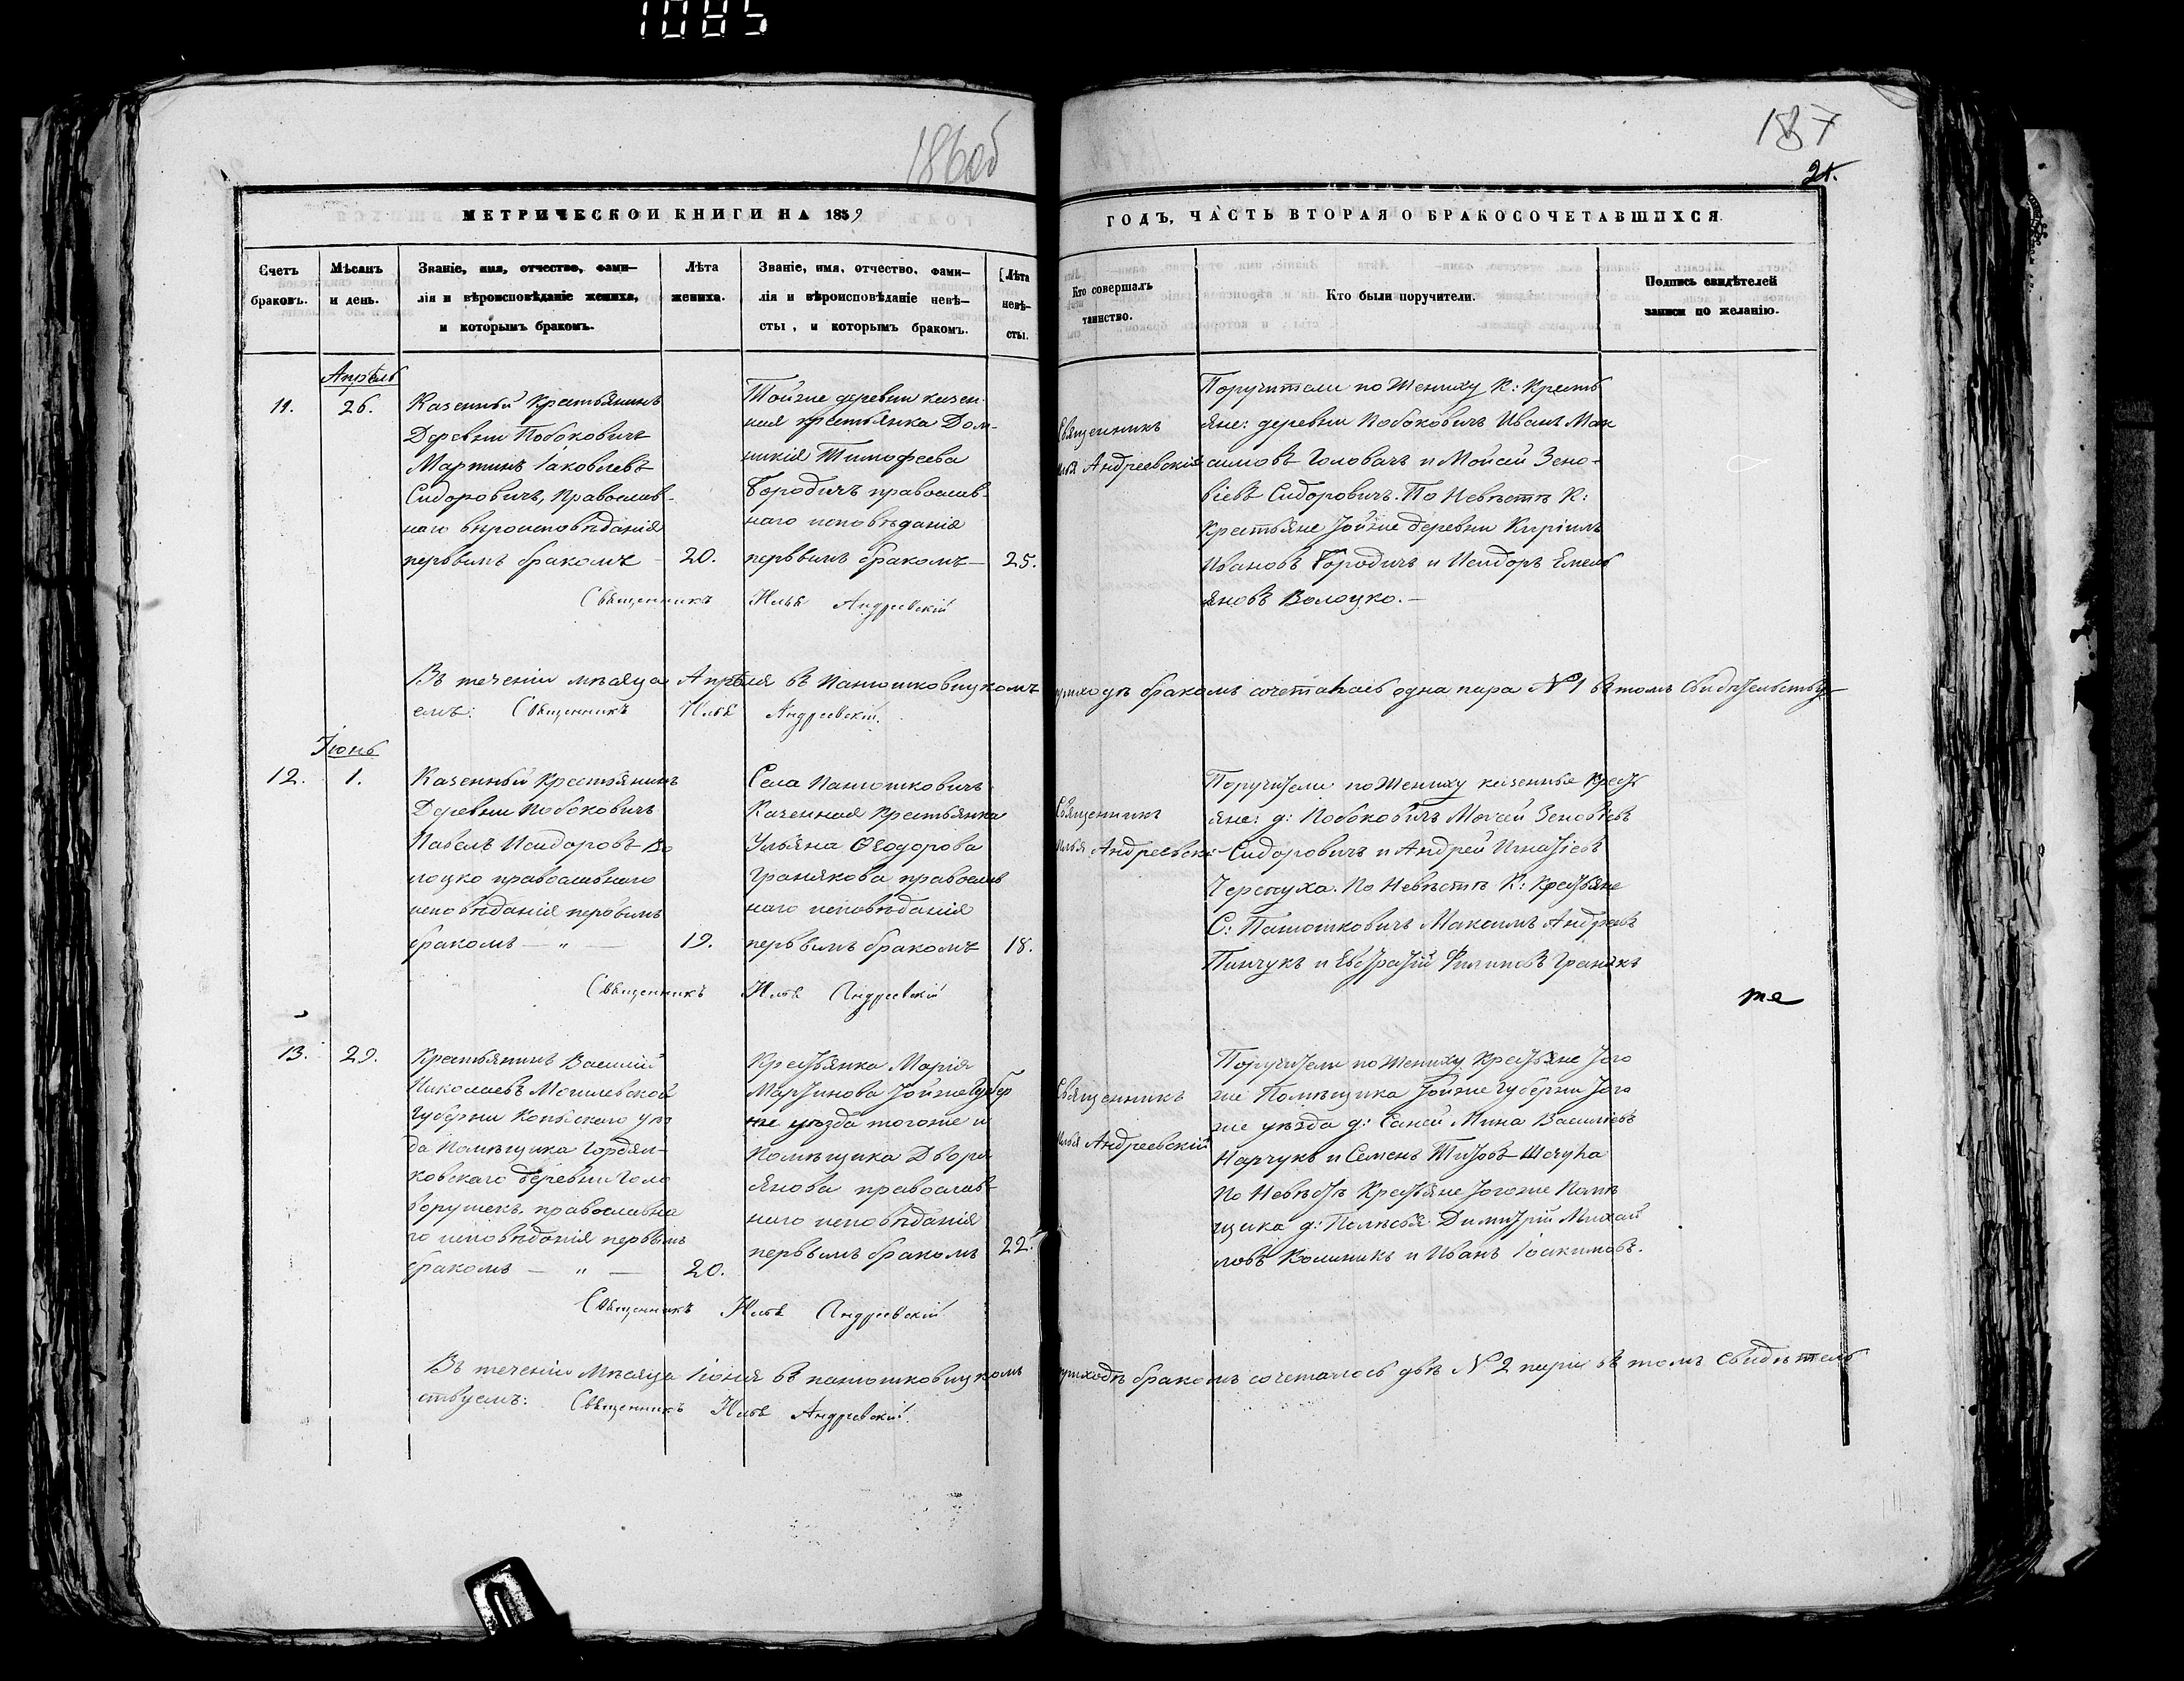 1085
186об
187
21.
МЕТРИЧЕСКОЙ КНИГИ НА 1859
ГОДЪ, ЧАСТЬ ВТОРАЯ О БРАКОСОЧЕТАВШИХСЯ.
Счетъ
браковъ.
Мѣсяцъ
и день.
Званіе, имя, отчество, фами-
лія и вѣроисповѣданіе жениха,
и которымъ бракомъ.
Лѣта
жениха.
Званіе, имя, отчество, фами-
лія и вѣроисповѣданіе невѣ-
сты, и которымъ бракомъ.
Лѣта
невѣ-
сты.
Кто совершалъ
таинство.
Кто были поручители.
Подпись свидѣтелей
записи по желанію.
Апрѣль
11.
26.
Казенный Крестьянинъ
Деревни Побоковичъ
Мартинъ Іаковлевъ
Сидоровичъ, Православ-
наго вѣроисповѣданія
первымъ бракомъ
20.
Тойже деревни казен-
ная крестьянка Дом-
никія Тимофеева
Бородичъ православ-
наго исповѣданія
первымъ бракомъ—
25.
Священникъ
Илья Андреевскій
Поручители по Жениху К: Кресть
яне: деревни Побоковичъ Иванъ Мак
симовъ Головачъ и Мойсей Зено-
віевъ Сидоровичъ. По Невѣстѣ К:
Крестьяне тойже деревни Киріилъ
Ивановъ Бородичъ и Исидоръ Емель
яновъ Волоцко.—
Священникъ Илья Андреевскій
Въ теченіи мѣсяца Апрѣля въ Панюшковицкомъ приходѣ бракомъ сочеталась одна пара № 1 въ томъ свидѣтельству-
емъ: Священникъ Илья Андреевскій.
Іюнь
12.
1.
Казенный Крестьянинъ
Деревни Побоковичъ
Павелъ Исидоровъ Во
лоцко православнаго
исповѣданія первымъ
бракомъ — „ —
19.
Села Панюшковичъ
Казенная Крестьянка
Ульяна Ѳеодорова
Гранякова православ
наго исповѣданія
первымъ бракомъ
18.
Священникъ
Илья Андреевскі
Поручители по Жениху казенные Кресть
яне: д: Побоковичъ Моисей Зеновіевъ
Сидоровичъ и Андрей Игнатіевъ
Черепуха. По Невѣстѣ К: Крестьяне
С: Панюшковичъ Максимъ Андреевъ
Пинчукъ и Евстратій Филиповъ Гранякъ
Священникъ Илья Андреевскій
те
13.
29.
Крестьянинъ Василій
Николаевъ Могилевской
Губерніи Копыскаго уѣз
да Помѣщика Гордял-
ковскаго деревни Голо
ворушекъ православна
го исповѣданія первымъ
бракомъ — „ —
20.
Крестьянка Марія
Мартинова тойже Губер
ніи уѣзда тогоже и
Помѣщика Дворя
янова православ-
наго исповѣданія
первымъ бракомъ
22.
Священникъ
Илья Андреевскій
Поручители по Жениху Крестьяне того
же Помѣщика тойже Губерніи того
же уѣзда д: Саней Мина Василіевъ
Нарчукъ и Семенъ Титовъ
По Невѣстѣ Крестьяне тогоже Помѣ
щика д: Полѣсья Димитрій Михай
ловъ Колиникъ и Иванъ Іоакимовъ.
Священникъ Илья Андреевскій
Въ теченіи Мѣсяца Іюня въ панюшковицкомъ приходѣ бракомъ сочеталось двѣ № 2 пары въ томъ свидѣтель
ствуемъ: Священникъ Илья Андреевскій.